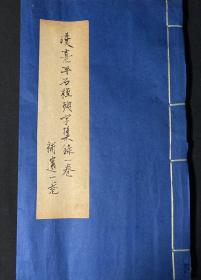 漢熹平石經殘字集錄一卷
補遺一卷